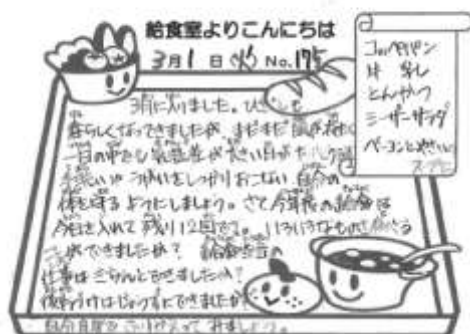 給食室よりこんにちは
3月1日(火) No.175
コッペパン
牛乳
とんかつ
シーザーサラダ
ベーコンとやさいの
スープ
3月に入りました。
春らしくなってきましたが、まだまだ風が
一日の中でも気温差が大きい日が
手洗いやうがいをしっかりおこない、自分の
体を守るようにしましょう。さて今年度の給食は
今日を入れて残り12回です。いろいろなものを
ことができましたか？ 給食当番の
仕事はきちんとできましたか？
後かたづけはじょうずにできましたか？
自分自身でふりかえってみましょう。